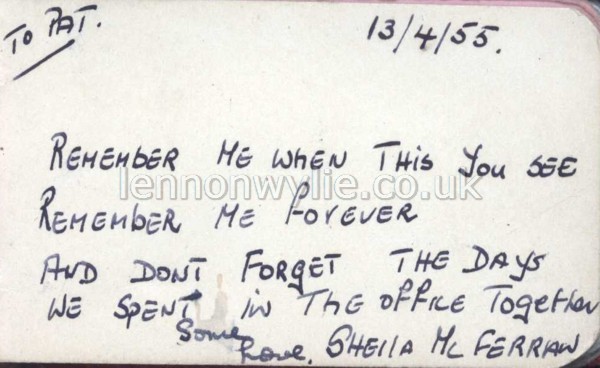 TO PAT.
13/4/55.
REMEMBER ME WHEN THIS YOU SEE
lennonwylie.co.uk
REMEMBER ME FOREVER
AND DONT FORGET THE DAYS
WE SPENT IN THE OFFICE TOGETHER
Some
Love, SHEILA MC FERRAN